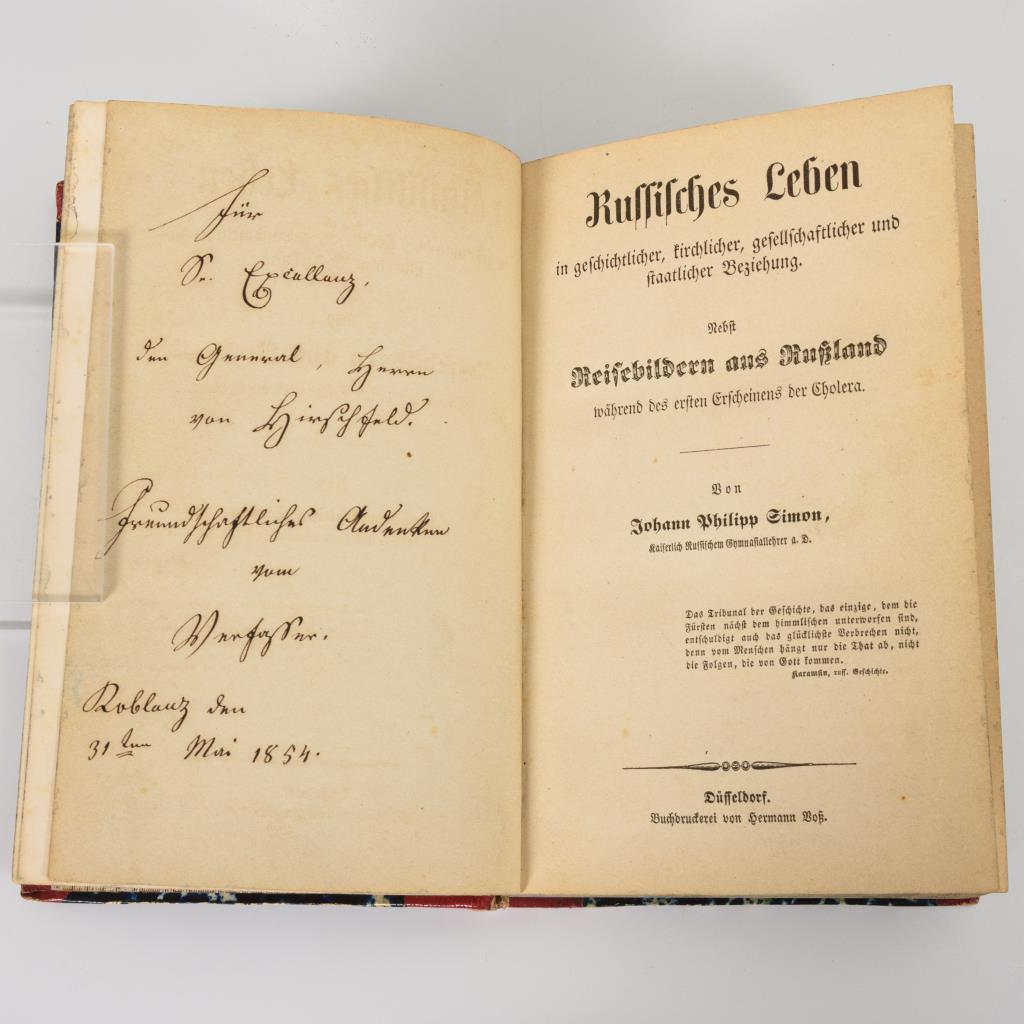 Für
Sr. Excellenz,
den General, Herrn
von Hirschfeld.
Freundschaftliches Andenken
vom
Verfasser.
Koblenz den
31ten Mai 1854.
Russisches Leben
in geschichtlicher, kirchlicher, gesellschaftlicher und
staatlicher Beziehung.
Nebst
Reisebildern aus Rußland
während des ersten Erscheinens der Cholera.
Von
Johann Philipp Simon,
Kaiserlich Russischem Gymnasiallehrer a. D.
Das Tribunal der Geschichte, das einzige, dem die
Fürsten nächst dem himmlischen unterworfen sind,
entschuldigt auch das glücklichste Verbrechen nicht,
denn vom Menschen hängt nur die That ab, nicht
die Folgen, die von Gott kommen.
Karamsin, russ. Geschichte.
Düsseldorf.
Buchdruckerei von Hermann Voß.